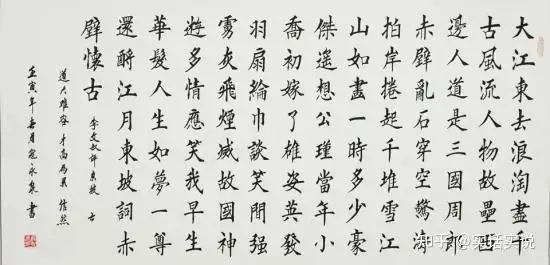 大江東去浪淘盡千
古風流人物故壘西
邊人道是三國周郎
赤壁亂石穿空驚濤
拍岸捲起千堆雪江
山如畫一時多少豪
傑遙想公瑾當年小
喬初嫁了雄姿英發
羽扇綸巾談笑間强
虜灰飛煙滅故國神
遊多情應笑我早生
華髮人生如夢一尊
還酹江月東坡詞赤
壁懷古
道大難容 才高為累 信然
壬寅年春月寇永泉書
知乎 @实话实说